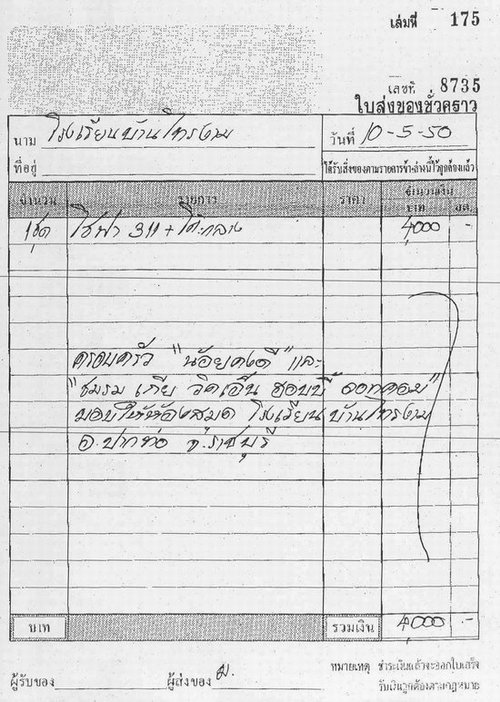 เล่มที่ 175
เลขที่ 8735
ใบส่งของชั่วคราว
นาม โรงเรียนบ้านไทรงาม
วันที่ 10-5-50
ที่อยู่
ได้รับสิ่งของตามรายการข้างล่างนี้ไว้ถูกต้องแล้ว
จำนวน รายการ ราคา จำนวนเงิน
บาท สต.
1ชุด โซฟา 311 + โต๊ะกลาง 4,000 -
ครอบครัว "น้อยคงดี" และ
"ชมรม เกีย วีคเอ็น ฮอบบี้ ดอทคอม"
มอบให้ห้องสมุด โรงเรียนบ้านไทรงาม
อ.ปากท่อ จ.ราชบุรี
บาท รวมเงิน 4,000 -
ผู้รับของ ผู้ส่งของ
หมายเหตุ ชำระเงินแล้วจะออกใบเสร็จ
รับเงินถูกต้องตามกฎหมาย